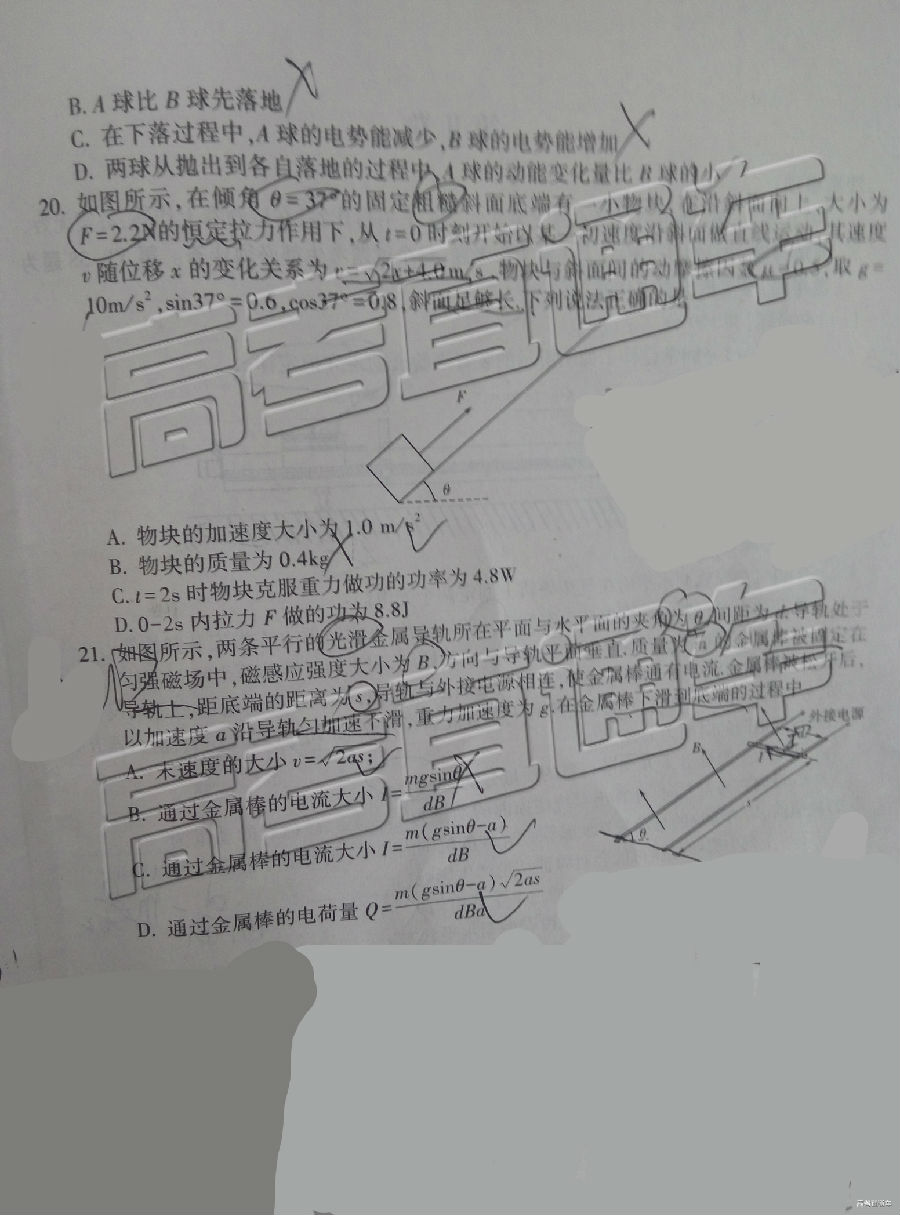 B. A 球比 B 球先落地
C. 在下落过程中,A 球的电势能减少,B 球的电势能增加
D. 两球从抛出到各自落地的过程中,A 球的动能变化量比 B 球的小
20. 如图所示,在倾角 θ=37°的固定粗糙斜面底端有一小物块,在沿斜面向上、大小为
F=2.2N的恒定拉力作用下,从 t=0 时刻开始以某一初速度沿斜面做直线运动,其速度
v 随位移 x 的变化关系为 v=√2x+4.0 m/s,物块与斜面间的动摩擦因数 μ=0.5,取 g=
10m/s²,sin37°=0.6,cos37°=0.8,斜面足够长.下列说法正确的是
F
θ
A. 物块的加速度大小为 1.0 m/s²
B. 物块的质量为 0.4kg
C. t=2s 时物块克服重力做功的功率为 4.8W
D. 0-2s 内拉力 F 做的功为 8.8J
21. 如图所示,两条平行的光滑金属导轨所在平面与水平面的夹角为 θ,间距为 d.导轨处于
匀强磁场中,磁感应强度大小为 B,方向与导轨平面垂直.质量为 m 的金属棒被固定在
导轨上,距底端的距离为 s,导轨与外接电源相连,使金属棒通有电流.金属棒被松开后,
以加速度 a 沿导轨匀加速下滑,重力加速度为 g.在金属棒下滑到底端的过程中
外接电源
B
θ
A. 末速度的大小 v=√2as;
B. 通过金属棒的电流大小 I=mgsinθ/dB
C. 通过金属棒的电流大小 I=m(gsinθ-a)/dB
D. 通过金属棒的电荷量 Q=m(gsinθ-a)√2as/dBa
高考直通车
高考直通车
高考直通车